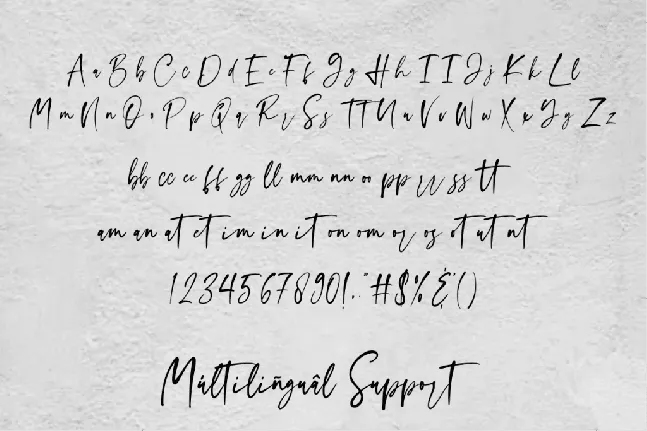 A a B b C c D d E e F f G g H h I I J j K k L l
M m N n O o P p Q q R r S s T T U u V v W w X x Y y Z z
bb cc ee ff gg ll mm nn oo pp rr ss tt
am an at et im in it on om or os ot ut nt
1234567890!.." #$%&'()
Múltilingüâl Support